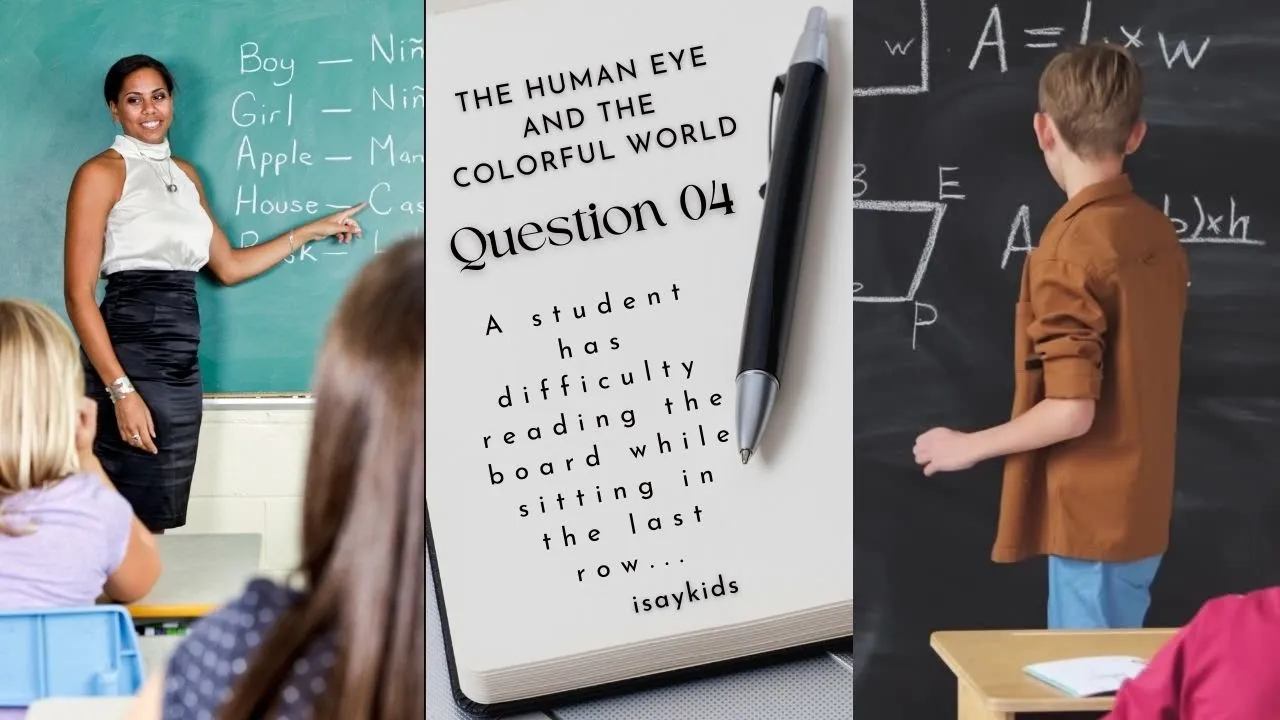 Boy — Niñ
Girl — Niñ
Apple — Man
House — Cas
THE HUMAN EYE
AND THE
COLORFUL WORLD
Question 04
A student
has
difficulty
reading the
board while
sitting in
the last
row...
isaykids
w
A = l x w
B E
A b)xh
P